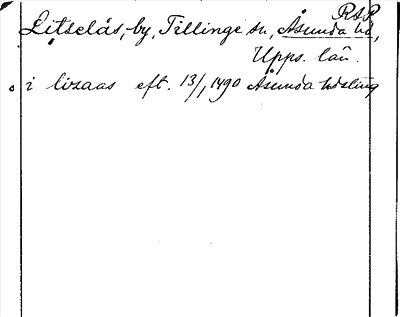 RSP
Litselås, by, Tillinge sn, Åsunda hd,
Upps. län.
i lizaas eft. 13/1 1490 Åsunda hdsting